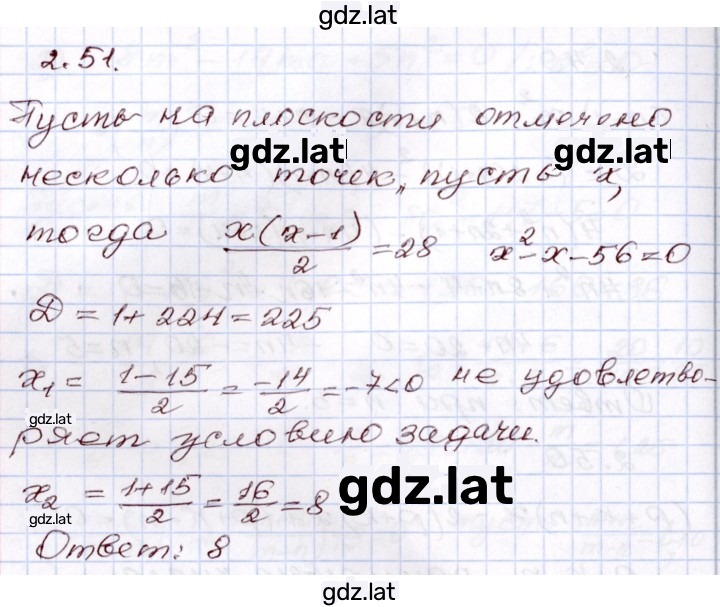 gdz.lat
2.51.
Пусть на плоскости отмечено
gdz.lat gdz.lat
несколько точек, пусть x,
тогда x(x-1)/2 = 28 x²-x-56=0
D = 1+224=225
x₁ = (1-15)/2 = -14/2 = -7<0 не удовлетво-
gdz.lat
ряет условию задачи.
gdz.lat
x₂ = (1+15)/2 = 16/2 = 8
gdz.lat
Ответ: 8
gdz.lat